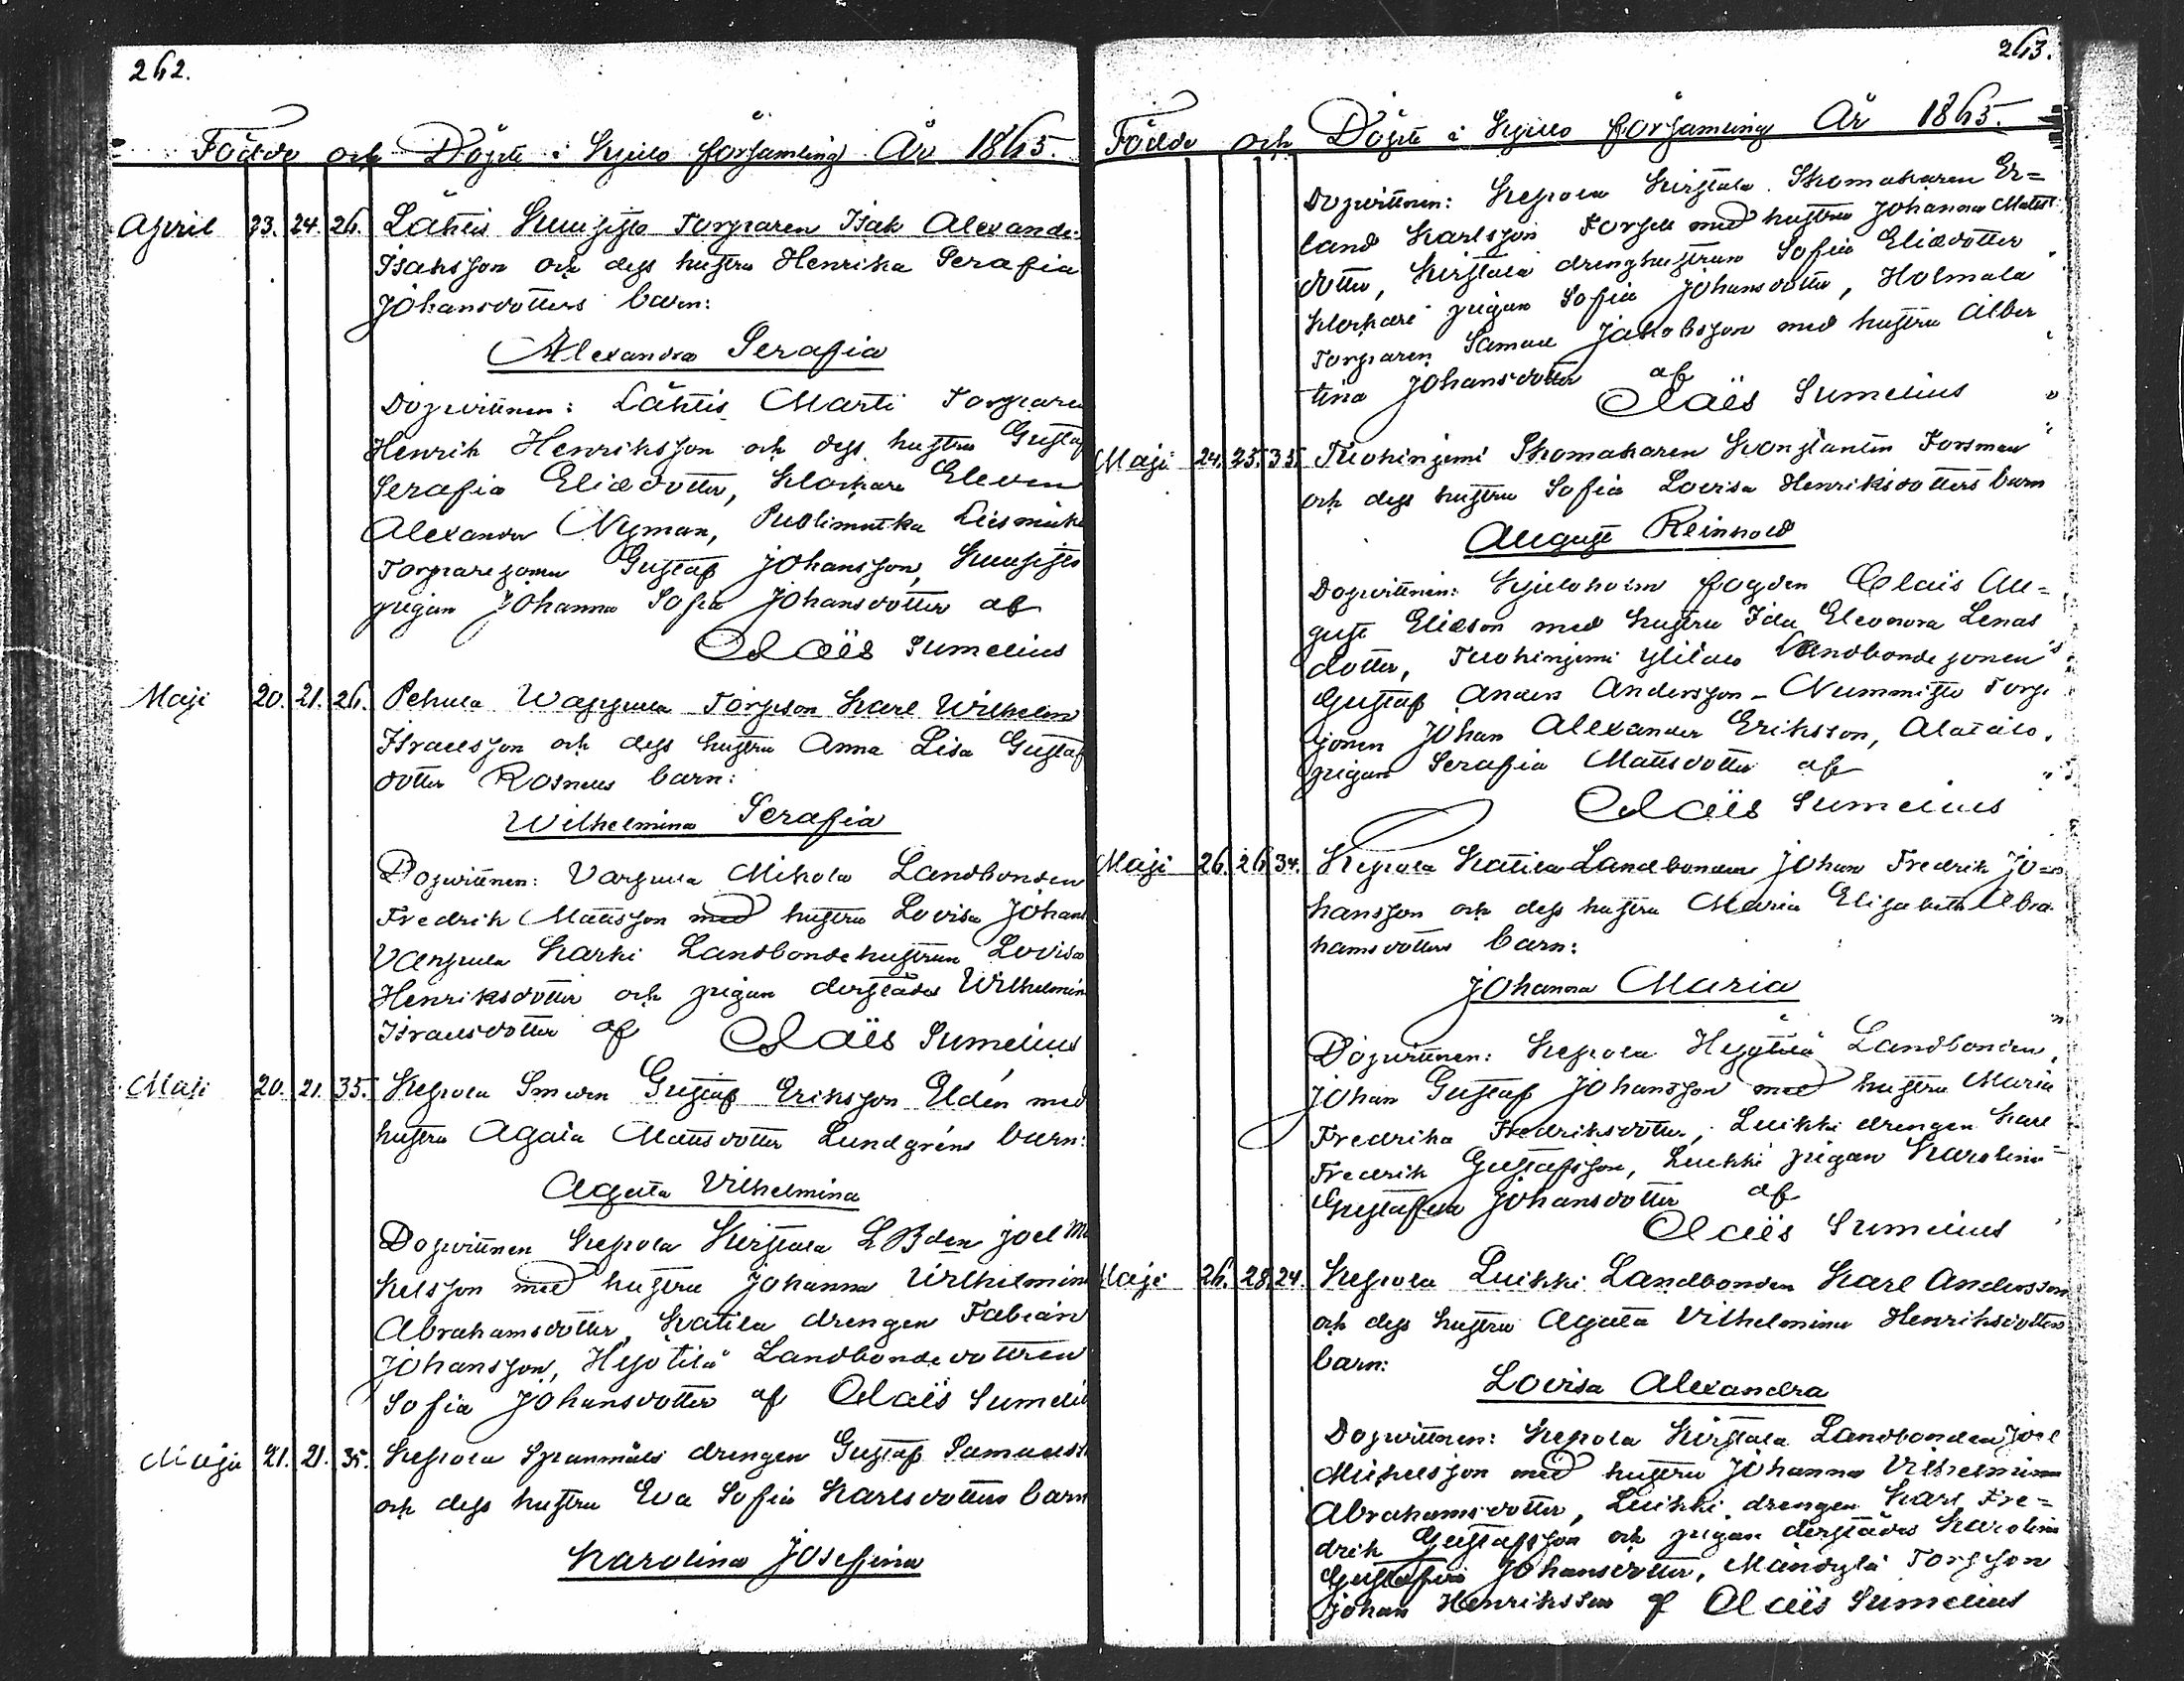 262.
Födde och Döpte i Kjulo församling År 1865.
April 23. 24. 26. Lähtis Kuusisto Torparen Isak Alexander
Isaksson och dess hustru Henrika Serafia
Johansdotters barn:
Alexandra Serafia
Dopvittnen: Lähtis Martti Torparen
Henrik Henriksson och dess hustru Gustaf
Serafia Eliædotter, Klockare Eleven
Alexander Nyman, Puolimatka
Torparesonen Gustaf Johansson, Kuusisto
pigan Johanna Sofia Johansdotter af
Claës Sumelius
Maji 20. 21. 26. Pehula Torpson Karl Wilhelm
Israelsson och dess hustru Anna Lisa Gustafs
dotter Rosnells barn:
Wilhelmina Serafia
Dopvittnen: Vargula Mikola Landbonden
Fredrik Mattsson med hustru Lovisa Johans
Vargula Karhi Landbondehustrun Lovisa
Henriksdotter och pigan derstädes Wilhelmin
Israelsdotter af Claës Sumelius
Maji 20. 21. 35. Kepola Smeden Gustaf Eriksson Eldén med
hustru Agata Mattsdotter Lundgréns barn:
Agata Vilhelmina
Dopvittnen Kepola Kirstala LBden Joel Mi
kelsson med hustru Johanna Wilhelmina
Abrahamsdotter, Katila drengen Fabian
Johansson, Hejotilä Landbondedottren
Sofia Johansdotter af Claës Sumelius
Maji 21. 21. 35. Kepola Spanmäls drengen Gustaf Samuelss
och dess hustru Eva Sofia Karlsdotters barn
Karolina Josefina
263.
Födde och Döpte i Kjulo församling År 1865.
Dopvittnen: Kepola Kirstala Skomakaren Er=
land Karlsson Forsell med hustru Johanna Matts
dotter, Kirstala drenghustrun Sofia Eliædotter
Klockare pigan Sofia Johansdotter, Holmala
Torparen Samuel Jakobsson med hustru Alber
tina Johansdotter af
Claës Sumelius
Maji 24. 25. 35. Tuohiniemi Skomakaren Konstantin Forsman
och dess hustru Sofia Lovisa Henriksdotters barn
August Reinhold
Dopvittnen: Kjuloholm fogden Claës Au=
gust Eliæson med hustru Ida Eleonora Lenas
dotter, Tuohiniemi Ylitalo Landbondesonen
Gustaf Anders Andersson - Nummisto Torp
sonen Johan Alexander Eriksson, Alatalo
pigan Serafia Mattsdotter af
Claës Sumelius
Maji 26. 26. 34. Kepola Katila Landbonden Johan Fredrik Jo=
hansson och dess hustru Maria Elisabeth Abra
hamsdotters barn:
Johanna Maria
Dopvittnen: Kepola Hejotilä Landbonden
Johan Gustaf Johansson med hustru Maria
Fredrika Fredriksdotter, Luikki drengen Karl
Fredrik Gustafsson, Luikki pigan Karolina
Gustafva Johansdotter af
Claës Sumelius
Maji 26. 28. 24. Kepola Luikki Landbonden Karl Andersson
och dess hustru Agata Vilhelmina Henriksdotters
barn:
Lovisa Alexandra
Dopvittnen: Kepola Kirstala Landbonden Joel
Mickelsson med hustru Johanna Vilhelmina
Abrahamsdotter, Luikki drengen Karl Fre=
drik Gustafsson och pigan derstädes Karolina
Gustafva Johansdotter, Mäntylä Torpson
Johan Henriksson af Claës Sumelius